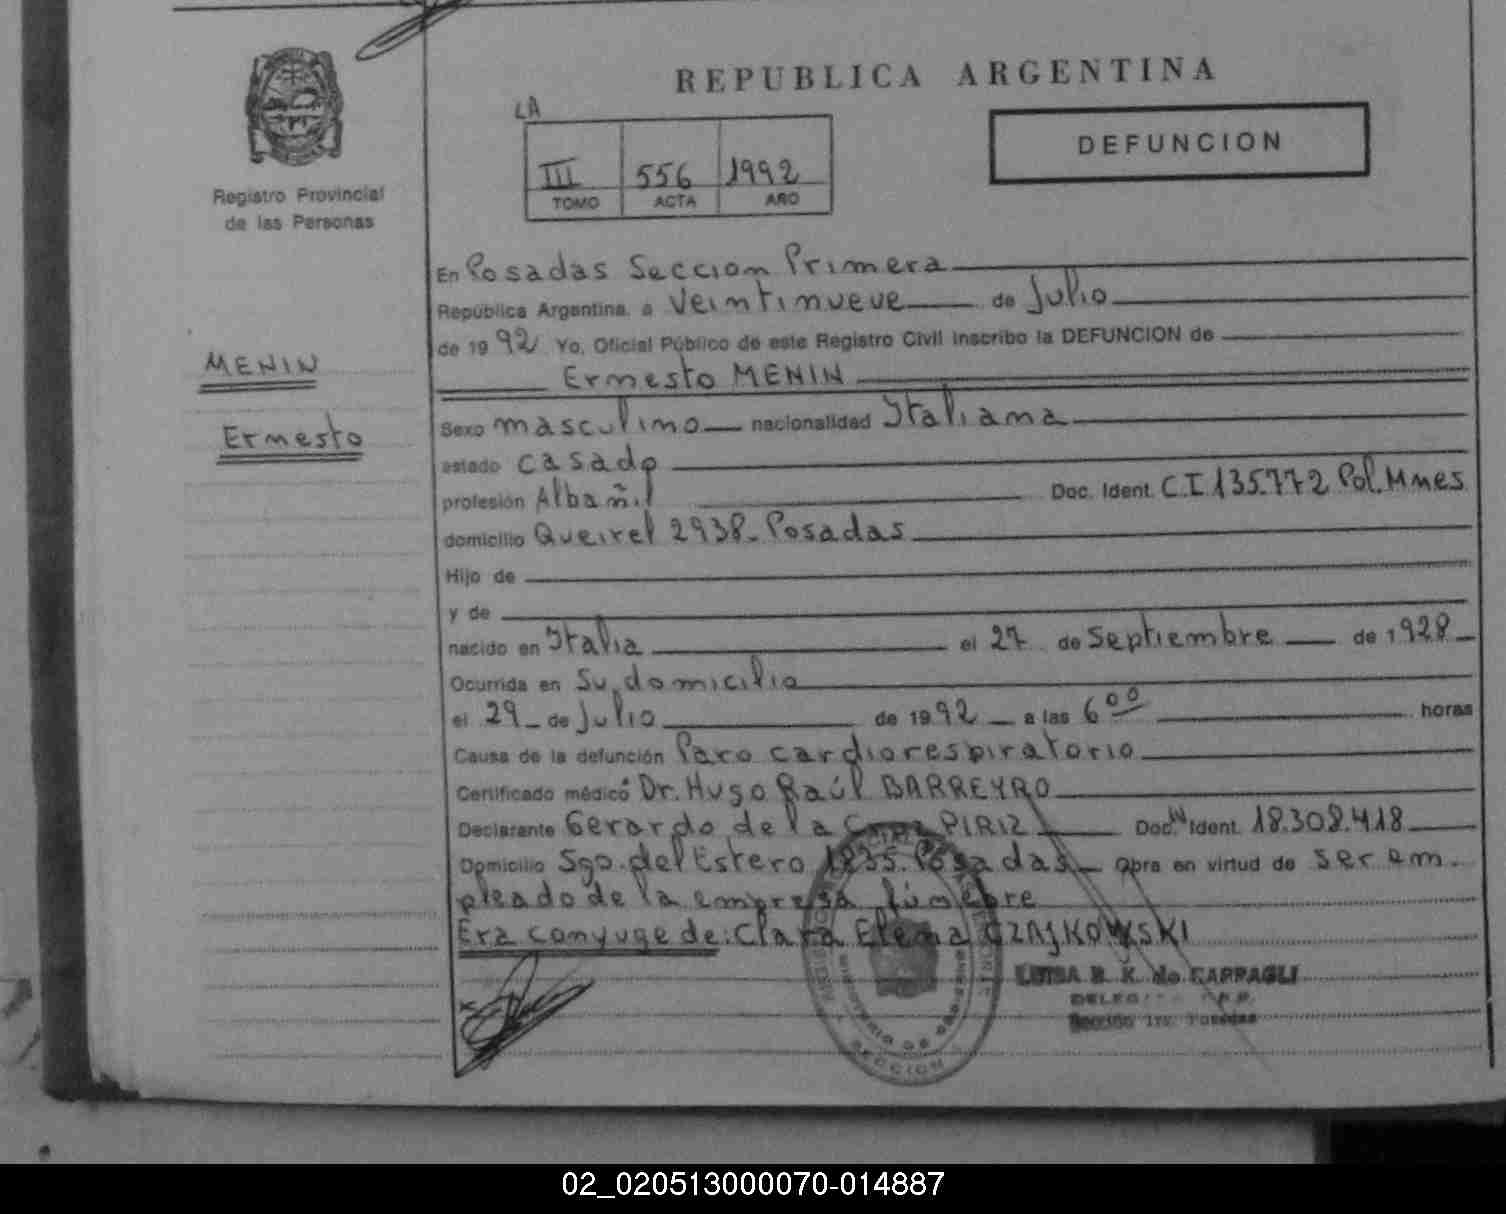 REPUBLICA ARGENTINA
LA
DEFUNCION
III 556 1992
TOMO ACTA AÑO
Registro Provincial
de las Personas
En Posadas Seccion Primera
República Argentina, a Veintinueve de Julio
de 1992 Yo, Oficial Público de este Registro Civil inscribo la DEFUNCION de
MENIN
Ernesto MENIN
Ernesto
Sexo masculino nacionalidad Italiana
estado casado
profesión Albañil Doc. Ident. C.I 135.772 Pol. Mnes
domicilio Queirel 2938. Posadas
Hijo de
y de
nacido en Italia el 27 de Septiembre de 1928
Ocurrida en Su domicilio
el 29 de Julio de 1992 a las 6 00 horas
Causa de la defunción Paro cardiorespiratorio
Certificado médico Dr. Hugo Raúl BARREYRO
Declarante Gerardo de la Cruz PIRIZ Doc. N Ident. 18.308.418
Domicilio Sgo. del Estero 1835. Posadas Obra en virtud de ser em-
pleado de la empresa fúnebre
Era conyuge de: Clara Elena CZAJKOWSKI
LUISA B. K. de CARPAGLI
SECCION
02_020513000070-014887